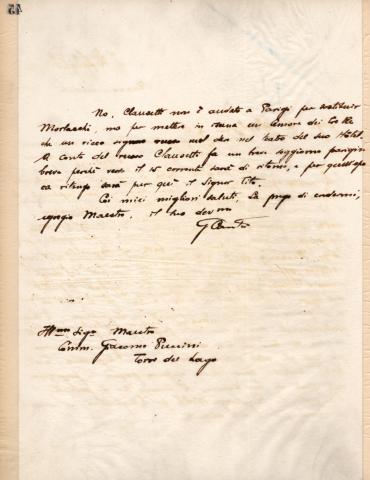 No, Clausetti non è andato a Parigi per sostituir
Morlacchi, ma per mettere in scena un Amore dei tre Re
che un ricco signore russo nel dà nel teatro del suo Hôtel.
A conto del russo Clausetti fa un buon soggiorno parigino
breve perchè verso il 15 corrente sarà di ritorno, e per quell'epo
ca ritengo sarà per qui il Signor Tito.
Coi miei migliori saluti, La prego di credermi,
egregio Maestro, il Suo dev mo
Ill mo Sigr Maestro
Comm. Giacomo Puccini
Torre del Lago